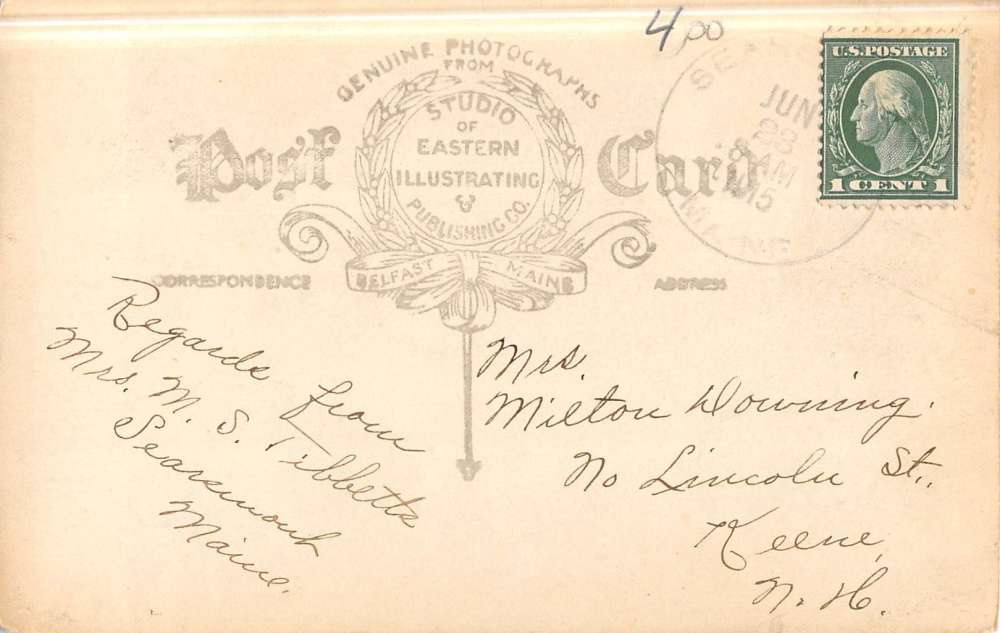 4.00
GENUINE PHOTOGRAPHS
FROM
STUDIO
OF
EASTERN
ILLUSTRATING
&
PUBLISHING CO.
BELFAST MAINE
Post Card
CORRESPONDENCE
ADDRESS
JUN
28
AM
15
MAINE
U.S. POSTAGE
1 CENT 1
Regards from
Mrs. M. S. Tibbetts
Searsmont
Maine.
Mrs.
Milton Downing.
No Lincoln St.,
Keene,
N. H.